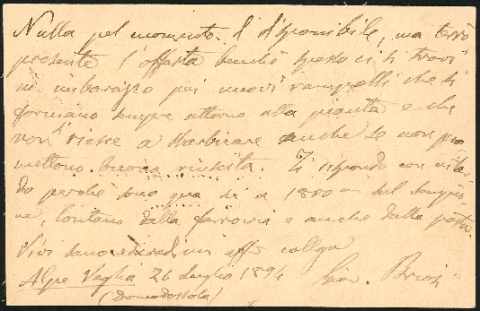 Nulla pel momento è disponibile, ma terrò
presente l'offerta benchè spesso ci si trovi
in imbarazzo pei nuovi rampolli che si
formano sempre attorno alla pianta e che
non si riesce a sbarbicare anche se non pro
mettono buona riuscita. Ti rispondo con ritar
do perchè sono qua su a 1800 m sul
lontano dalla ferrovia e anche dalla posta.
Vivi sano credimi aff.o collega
Alpe Veglia 26 Luglio 1894 Giov. Briosi
(Domodossola)